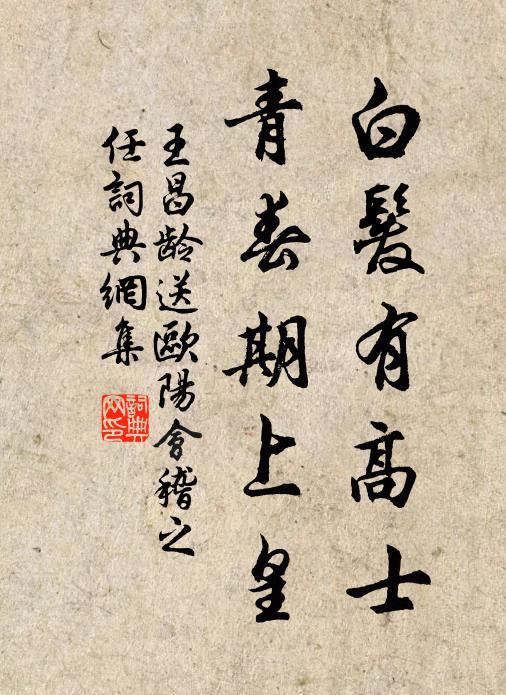 白髮有高士
青春期上皇
王昌龄送歐陽會稽之
任詞典網集
詞典網印